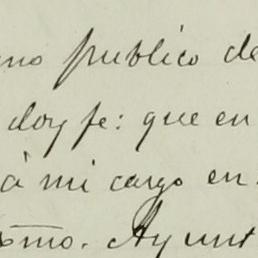 no publico de
doy fe: que en
à mi cargo en
mo. Ayunt